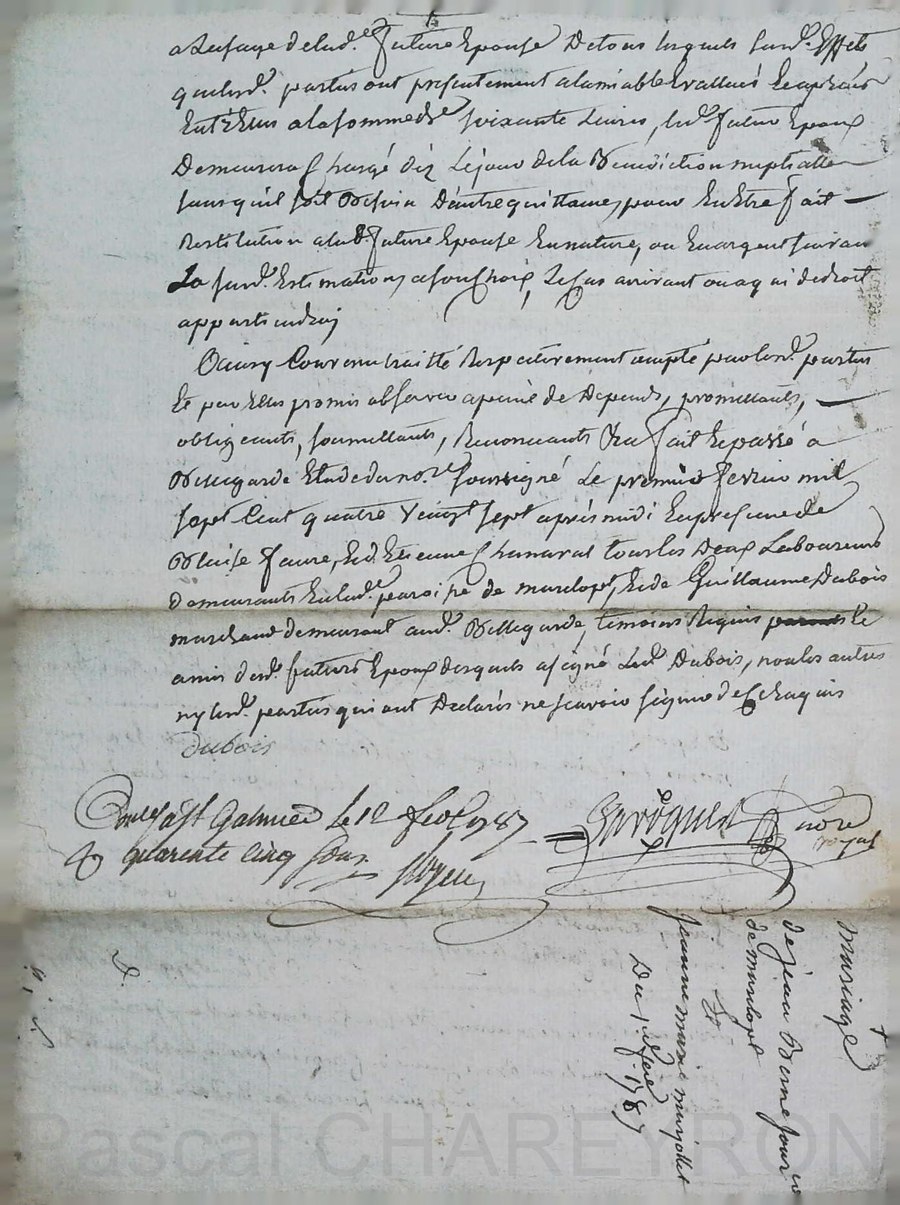 a Lusage de lad.e future Epouse De tous lesquels susd. Effets
que lesd. parties ont presentement a lamiable Evallués Et apréciés
Entr'Elles a la somme de soixante Livres, led. futur Epoux
Demeurera Chargé dez Le jour de la Benediction nuptialle
sans quil soit Besoin D'autre quittance, pour En Etre fait
Restitution a lad. future Epouse En nature, ou En argent suivant
La susd. Estimation a son Choix, Le Cas arrivant ou a qui de droit
appartiendra
Ainsy Convenu traitté Respectivement accepté par lesd. parties
Et par Elles promis observer a peine de Depends, promettants,
obligeants, soumettants, Renonceants &a fait Et passé a
Bellegarde Etude du no.re soussigné Le premier fevrier mil
sept Cent quatre Vingt sept aprés midi En presence de
Blaise faure, Et d'Etienne Chanavat tous les Deux Laboureurs
demeurants En lad. paroisse de marclopt, Et de Guillaume Dubois
marchand demeurant aud. Bellegarde, temoins Requis Et
amis desd. futurs Epoux desquels a signé led. Dubois, non les autres
ny lesd. parties qui ont Declarés ne scavoir signer de Ce Enquis
Dubois
Conlé a St Galmier Le 12 fevr. 1787
R quarente Cinq sous
no.re
royal
mariage
de jean
de marclopt
&
jeanne marie
Du 1er fevrier 1787
Pascal CHAREYRON